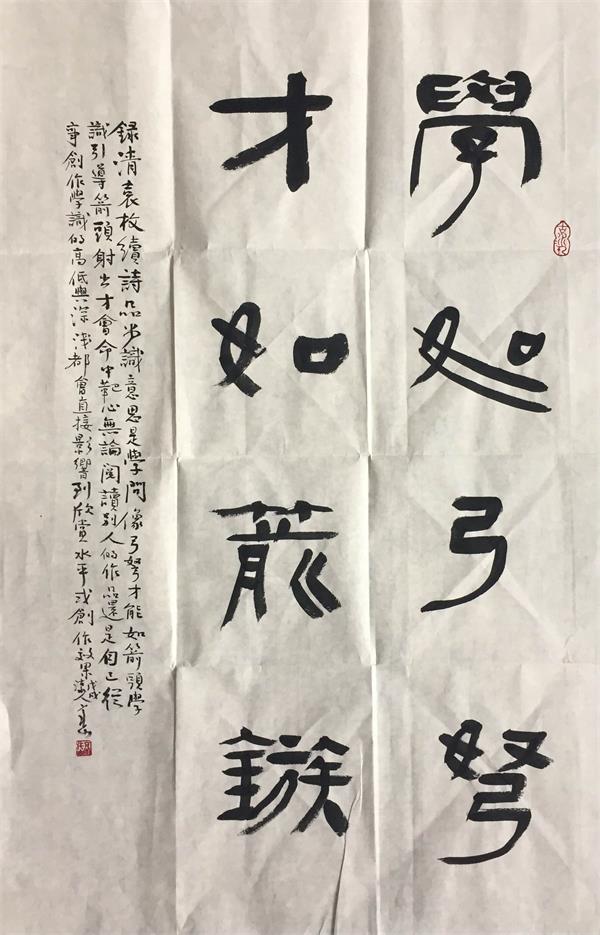 學如弓弩
才如箭鏃
録清袁枚續詩品尚識意思是學問像弓弩才能如箭頭學
識引導箭頭射出才會命中靶心無論閱讀别人的作品還是自己從
事創作學識的高低與深淺都會直接影響到欣賞水平或創作效果戊戌